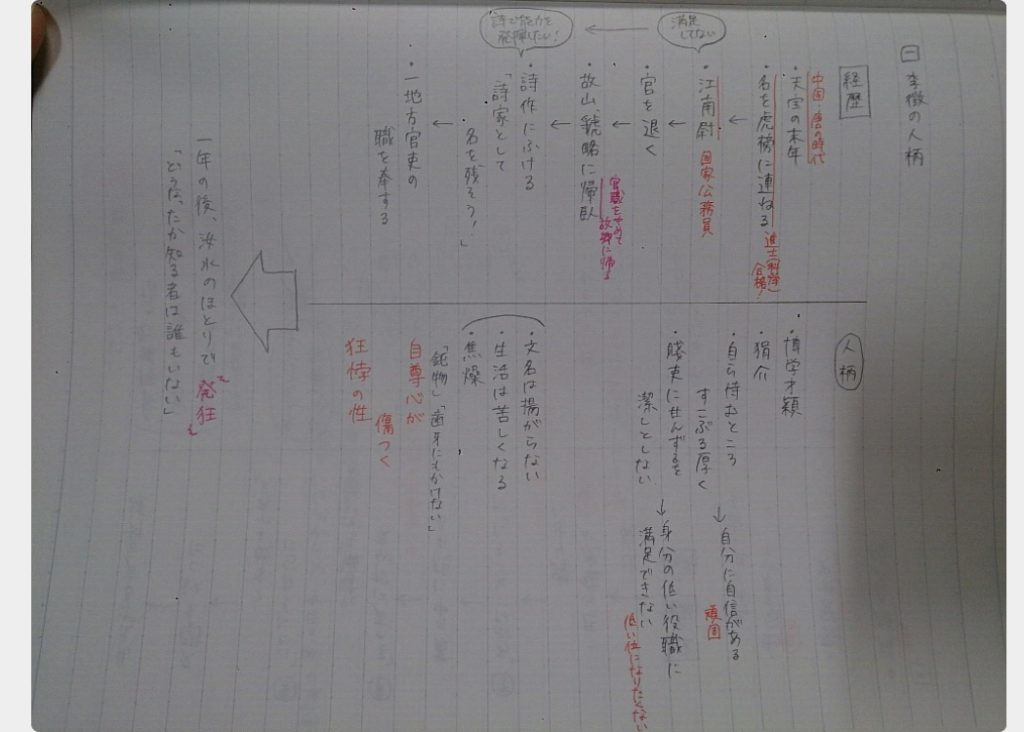 一 李徴の人柄
経歴
中国 唐の時代
・天宝の末年
・名を虎榜に連ねる 進士(科挙)合格!
・江南尉 国家公務員
満足してない
・官を退く
・故山、虢略に帰臥
官職をやめて故郷に帰る
・詩作にふける
詩で能力を発揮したい!
「詩家として
名を残そう!」
・一地方官吏の
職を奉する
人柄
・博学才穎
・狷介
・自ら恃むところ
すこぶる厚く
→自分に自信がある
頑固
・賤吏に甘んずるを
潔しとしない
→身分の低い役職に
満足できない
低い位になりたくない
・文名は揚がらない
・生活は苦しくなる
・焦燥
「鈍物」「歯牙にもかけない」
自尊心が
傷つく
狂悖の性
一年の後、汝水のほとりで発狂
「どうなったか知る者は誰もいない」